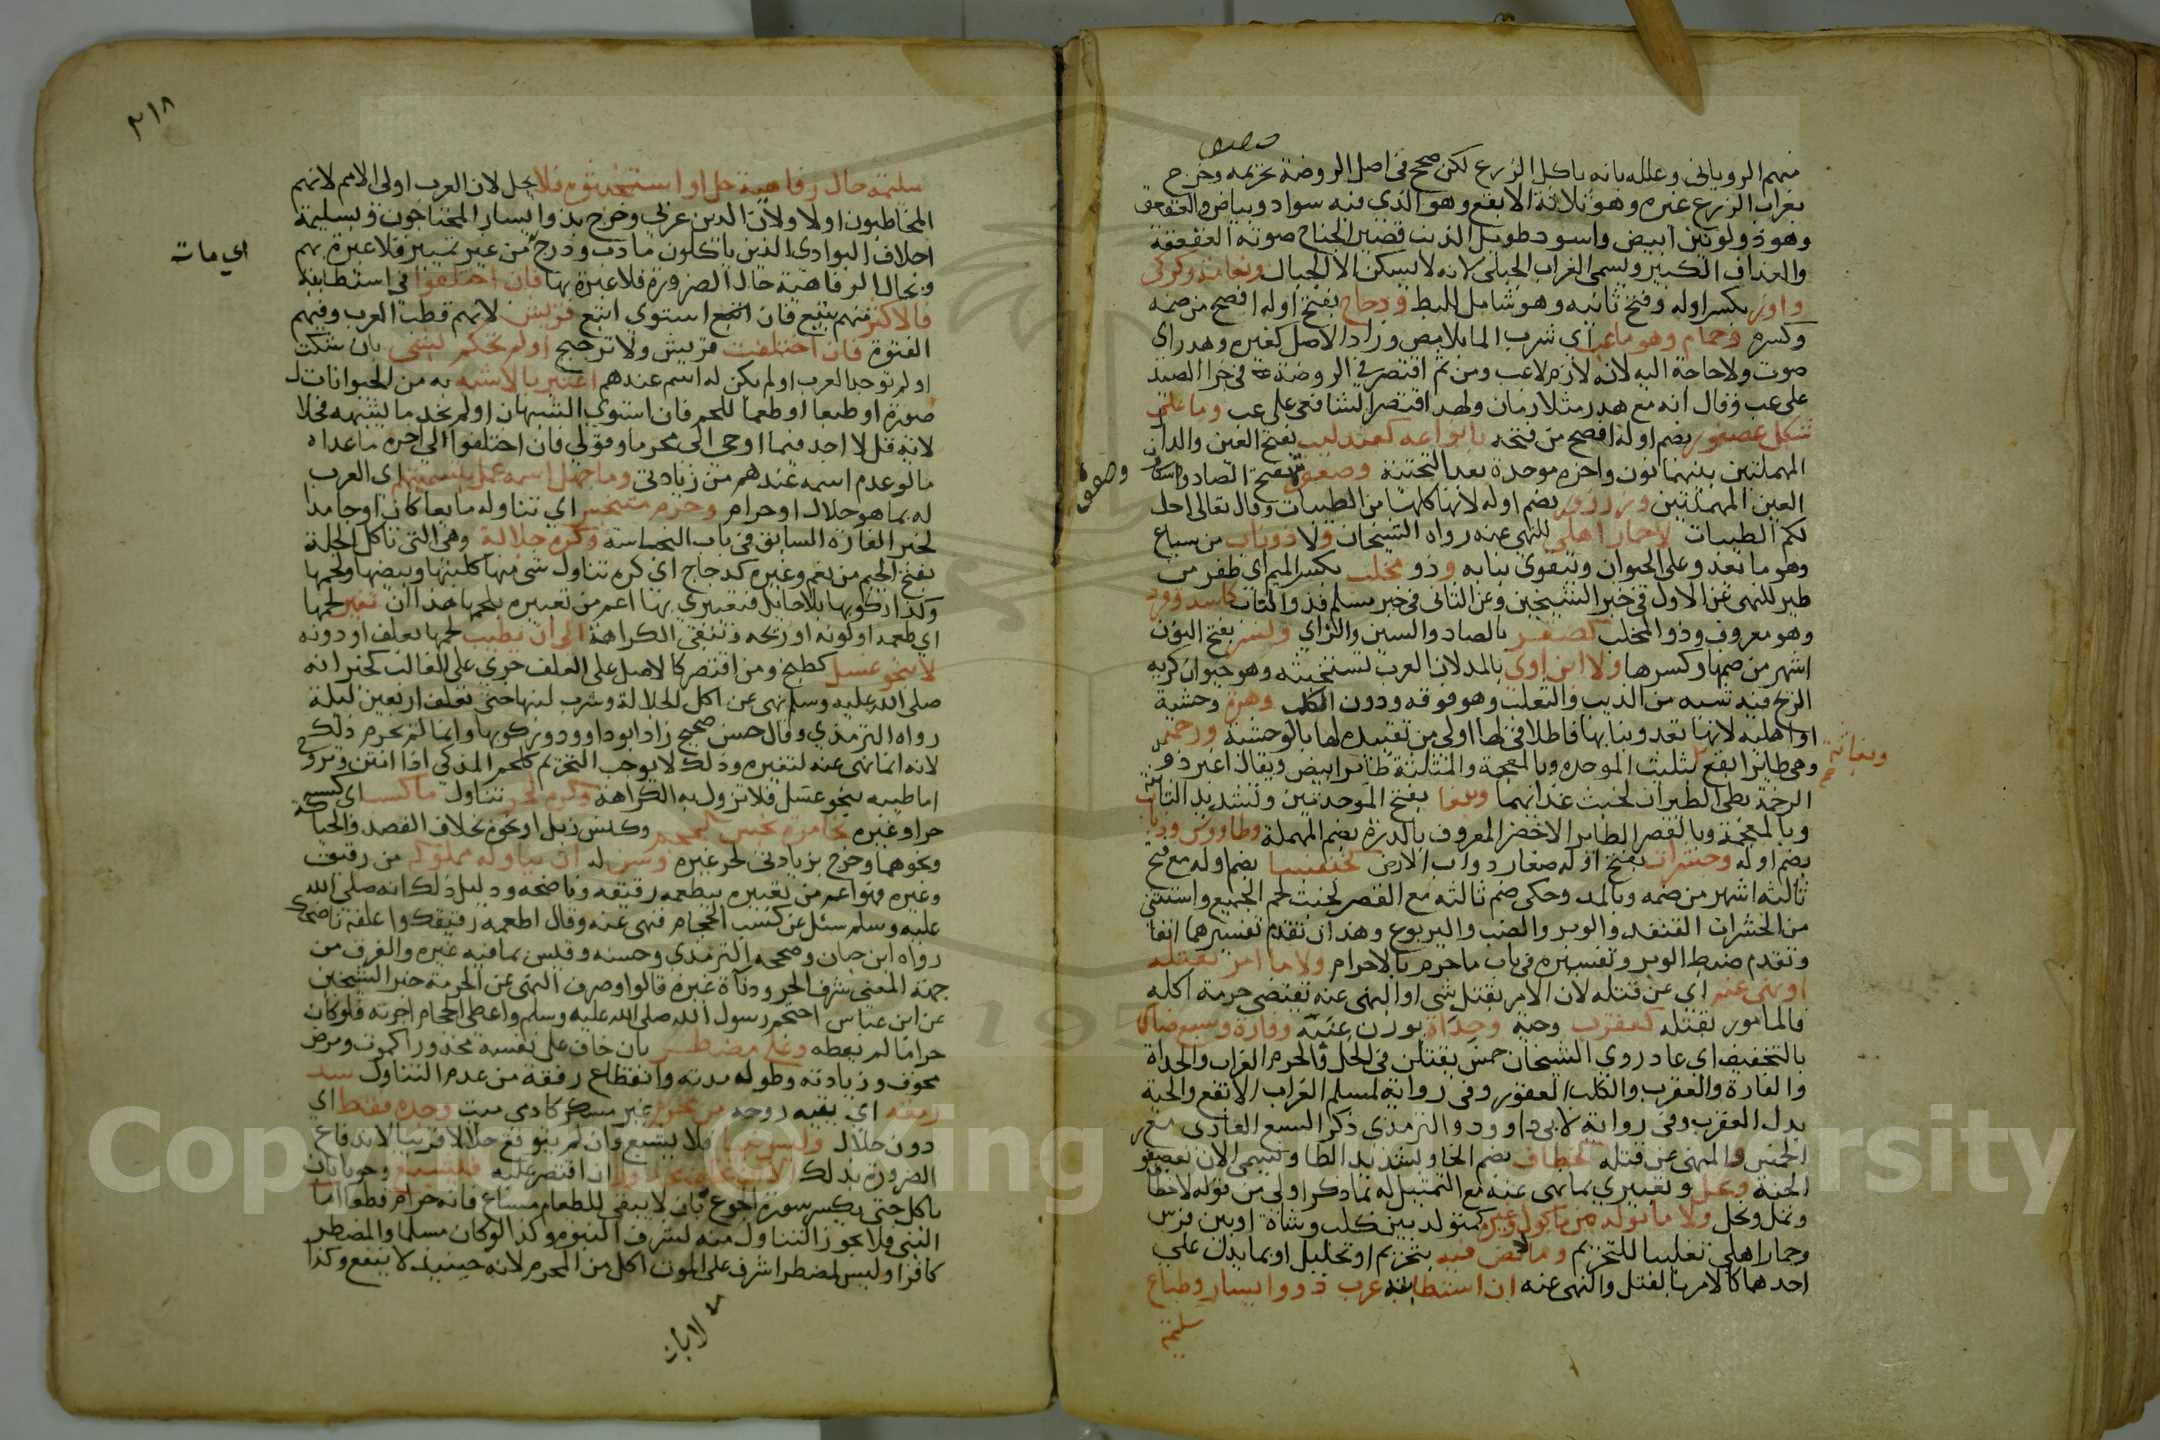 منهم الروياني وعلله بانه ياكل الزرع لكن صحح في اصل الروضة تحريمه وخرج
بغراب الزرع غيره وهو ثلاثة الابقع وهو الذي فيه سواد وبياض والعقعق
وهو ذو لونين ابيض واسود طويل الذنب قصير الجناح صوته العقعقة
والغداف الكبير ويسمى الغراب الجبلي لانه لا يسكن الا الجبال ونعامة وكركي
واوز بكسر اوله وفتح ثانيه وهو شامل للبط ودجاج بفتح اوله افصح من ضمه
وكسره وحمام وهو ما عب اي شرب الما بلا مص وزاد الاصل كغيره وهدر اي
صوت ولا حاجة اليه لانه لازم لاعب ومن ثم اقتصر في الروضة في جزا الصيد
على عب وقال انه مع هدر متلازمان ولهذا اقتصر الشافعي على عب وما على
شكل عصفور بضم اوله افصح من فتحه بانواعه كعندليب بفتح العين والدال
المهملتين بينهما نون واخره موحدة بعد التحتية وصعوة بفتح الصاد واسكان
وصعوة
العين المهملتين وزرزور بضم اوله لانها كلها من الطيبات وقال تعالى احل
لكم الطيبات لا حمار اهلي للنهي عنه رواه الشيخان ولا ذو ناب من سباع
وهو ما يعدو على الحيوان ويتقوى بنابه وذو مخلب بكسر الميم اي ظفر من
طير للنهي عن الاول في خبر الشيخين وعن الثاني في خبر مسلم فذو الناب كاسد وقرد
وهو معروف وذو المخلب كصقر بالصاد والسين والزاي ونسر بفتح النون
اشهر من ضمها وكسرها ولا ابن اوى بالمد لان العرب تستخبثه وهو حيوان كريه
الريح فيه شبه من الذيب والثعلب وهو فوقه ودون الكلب وهرة وحشية
او اهلية لانها تعدو بنابها فاطلاقي لها اولى من تقييده لها بالوحشية ورخمة
وبغاثة
وهي طائر ابقع بتثليث الموحدة وبالمعجمة والمثلثة طائر ابيض ويقال اغبر دون
الرخمة بطي الطيران لخبث غذائهما وببغا بفتح الموحدتين وتشديد الثانية
وبالمعجمة وبالقصر الطاير الاخضر المعروف بالدرة بضم المهملة وطاووس وذباب
بضم اوله وحشرات بفتح اوله صغار دواب الارض كخنفسا بضم اوله مع فتح
ثالثه اشهر من ضمه وبالمد وحكي ضم ثالثه مع القصر لخبث لحم الجميع واستثني
من الحشرات القنفد والوبر والضب واليربوع وهذان تقدم تفسيرهما انفا
وتقدم ضبط الوبر وتفسيره في باب ما حرم بالاحرام ولا ما امر بقتله
او نهي عنه اي عن قتله لان الامر بقتل شي او النهي عنه يقتضي حرمة اكله
فالمامور بقتله كعقرب وحية وحداة بوزن عنبة وفارة وسبع ضار
بالتخفيف اي عاد روى الشيخان خمس يقتلن في الحل والحرم الغراب والحداة
والفارة والعقرب والكلب العقور وفي رواية لمسلم الغراب الابقع والحية
بدل العقرب وفي رواية لابي داوود والترمذي ذكر السبع العادي مع
الخمس والمنهي عن قتله كخطاف بضم الخا وتشديد الطا ويسمى الان بعصفور
الجنة ونحل وتعبيري بما نهي عنه مع التمثيل له بما ذكر اولى من قوله لا خطاف
ونمل ونحل ولا ما تولد من ماكول وغيره كمتولد بين كلب وشاة او بين فرس
وحمار اهلي تغليبا للتحريم وما لا نص فيه بتحريم او تحليل او بما يدل على
احدهما كالامر بالقتل والنهي عنه ان استطابته عرب ذووا يسار وطباع
سليمة
٢١٨
سليمة حال رفاهية حل او استخبثوه فلا يحل لان العرب اولى الامم لانهم
المخاطبون اولا ولان الدين عربي وخرج بذوا يسار المحتاجون وبسليمة
اجلاف البوادي الذين ياكلون ما دب ودرج من غير تمييز فلا عبرة بهم
اي مات
وبحال الرفاهية حال الضرورة فلا عبرة بها فان اختلفوا في استطابته
فالاكثر منهم يتبع فان استوى اتبع قريش لانهم قطب العرب وفيهم
الفتوة فان اختلفت قريش ولا ترجيح او لم تحكم بشي بان شكت
او لم توجد العرب او لم يكن له اسم عندهم اعتبر بالاشبه به من الحيوانات
صورة او طبعا او طعما للحم فان استوى الشبهان او لم نجد ما يشبهه فحلال
لاية قل لا اجد فيما اوحي الي محرما وقولي فان اختلفوا الى اخره ما عدا
ما لو عدم اسمه عندهم من زيادتي وما جهل اسمه عمل بتسميتهم اي العرب
له بما هو حلال او حرام وحرم متنجس اي تناوله مايعا كان او جامدا
لخبر الفارة السابق في باب النجاسة وكره جلالة وهي التي تاكل الجلة
بفتح الجيم من نعم وغيره كدجاج اي كره تناول شي منها كلبنها وبيضها ولحمها
وكذا ركوبها بلا حايل فتعبيري بها اعم من تعبيره بلحمها هذا ان تغير لحمها
اي طعمه او لونه او ريحه وتبقى الكراهة الى ان يطيب لحمها بعلف او دونه
لا بنحو غسل كطبخ ومن اقتصر كالاصل على العلف جرى على الغالب لخبر انه
صلى الله عليه وسلم نهى عن اكل الجلالة وشرب لبنها حتى تعلف اربعين ليلة
رواه الترمذي وقال حسن صحيح زاد ابو داوود وركوبها وانما لم يحرم ذلك
لانه انما نهي عنه لتغيره وذلك لا يوجب التحريم كلحم المذكى اذا انتن وتروح
اما طيبه بنحو غسل فلا تزول به الكراهة وكره لحر تناول ما كسب اي كسبه
حر او غيره بمخامرة نجس كحجم وكنس زبل او نحوه بخلاف الفصد والحياكة
ونحوهما وخرج بزيادتي لحر غيره وسن له ان يناوله مملوكه من رقيق
وغيره فهو اعم من تعبيره بيطعمه رقيقه وناضحه ودليل ذلك انه صلى الله
عليه وسلم سئل عن كسب الحجام فنهى عنه وقال اطعمه رقيقك واعلفه ناضحك
رواه ابن حبان وصححه والترمذي وحسنه وقيس بما فيه غيره والفرق من
جهة المعنى شرف الحر ودناة غيره قالوا وصرف النهي عن الحرمة خبر الشيخين
عن ابن عباس احتجم رسول الله صلى الله عليه وسلم واعطى الحجام اجرته فلو كان
حراما لم يعطه وعلى مضطر بان خاف على نفسه محذورا كموت ومرض
مخوف وزيادته وطول مدته وانقطاع رفقة من عدم التناول سد
رمقه اي بقية روحه من محرم غير مسكر كادمي ميت وحده فقط اي
دون حلال وليس نبيا فلا يشبع وان لم يتوقع حلالا قريبا لاندفاع
الضرورة بذلك الا ان يخاف محذورا ان اقتصر عليه فيشبع وجوبا بان
ياكل حتى يكسر سورة الجوع بان لا يبقى للطعام مساغ فانه حرام قطعا اما
النبي فلا يجوز التناول منه لشرف النبوة وكذا لو كان مسلما والمضطر
كافرا وليس لمضطر اشرف على الموت اكل من المحرم لانه حينيذ لا ينفع وكذا
Copyright © King Saud University